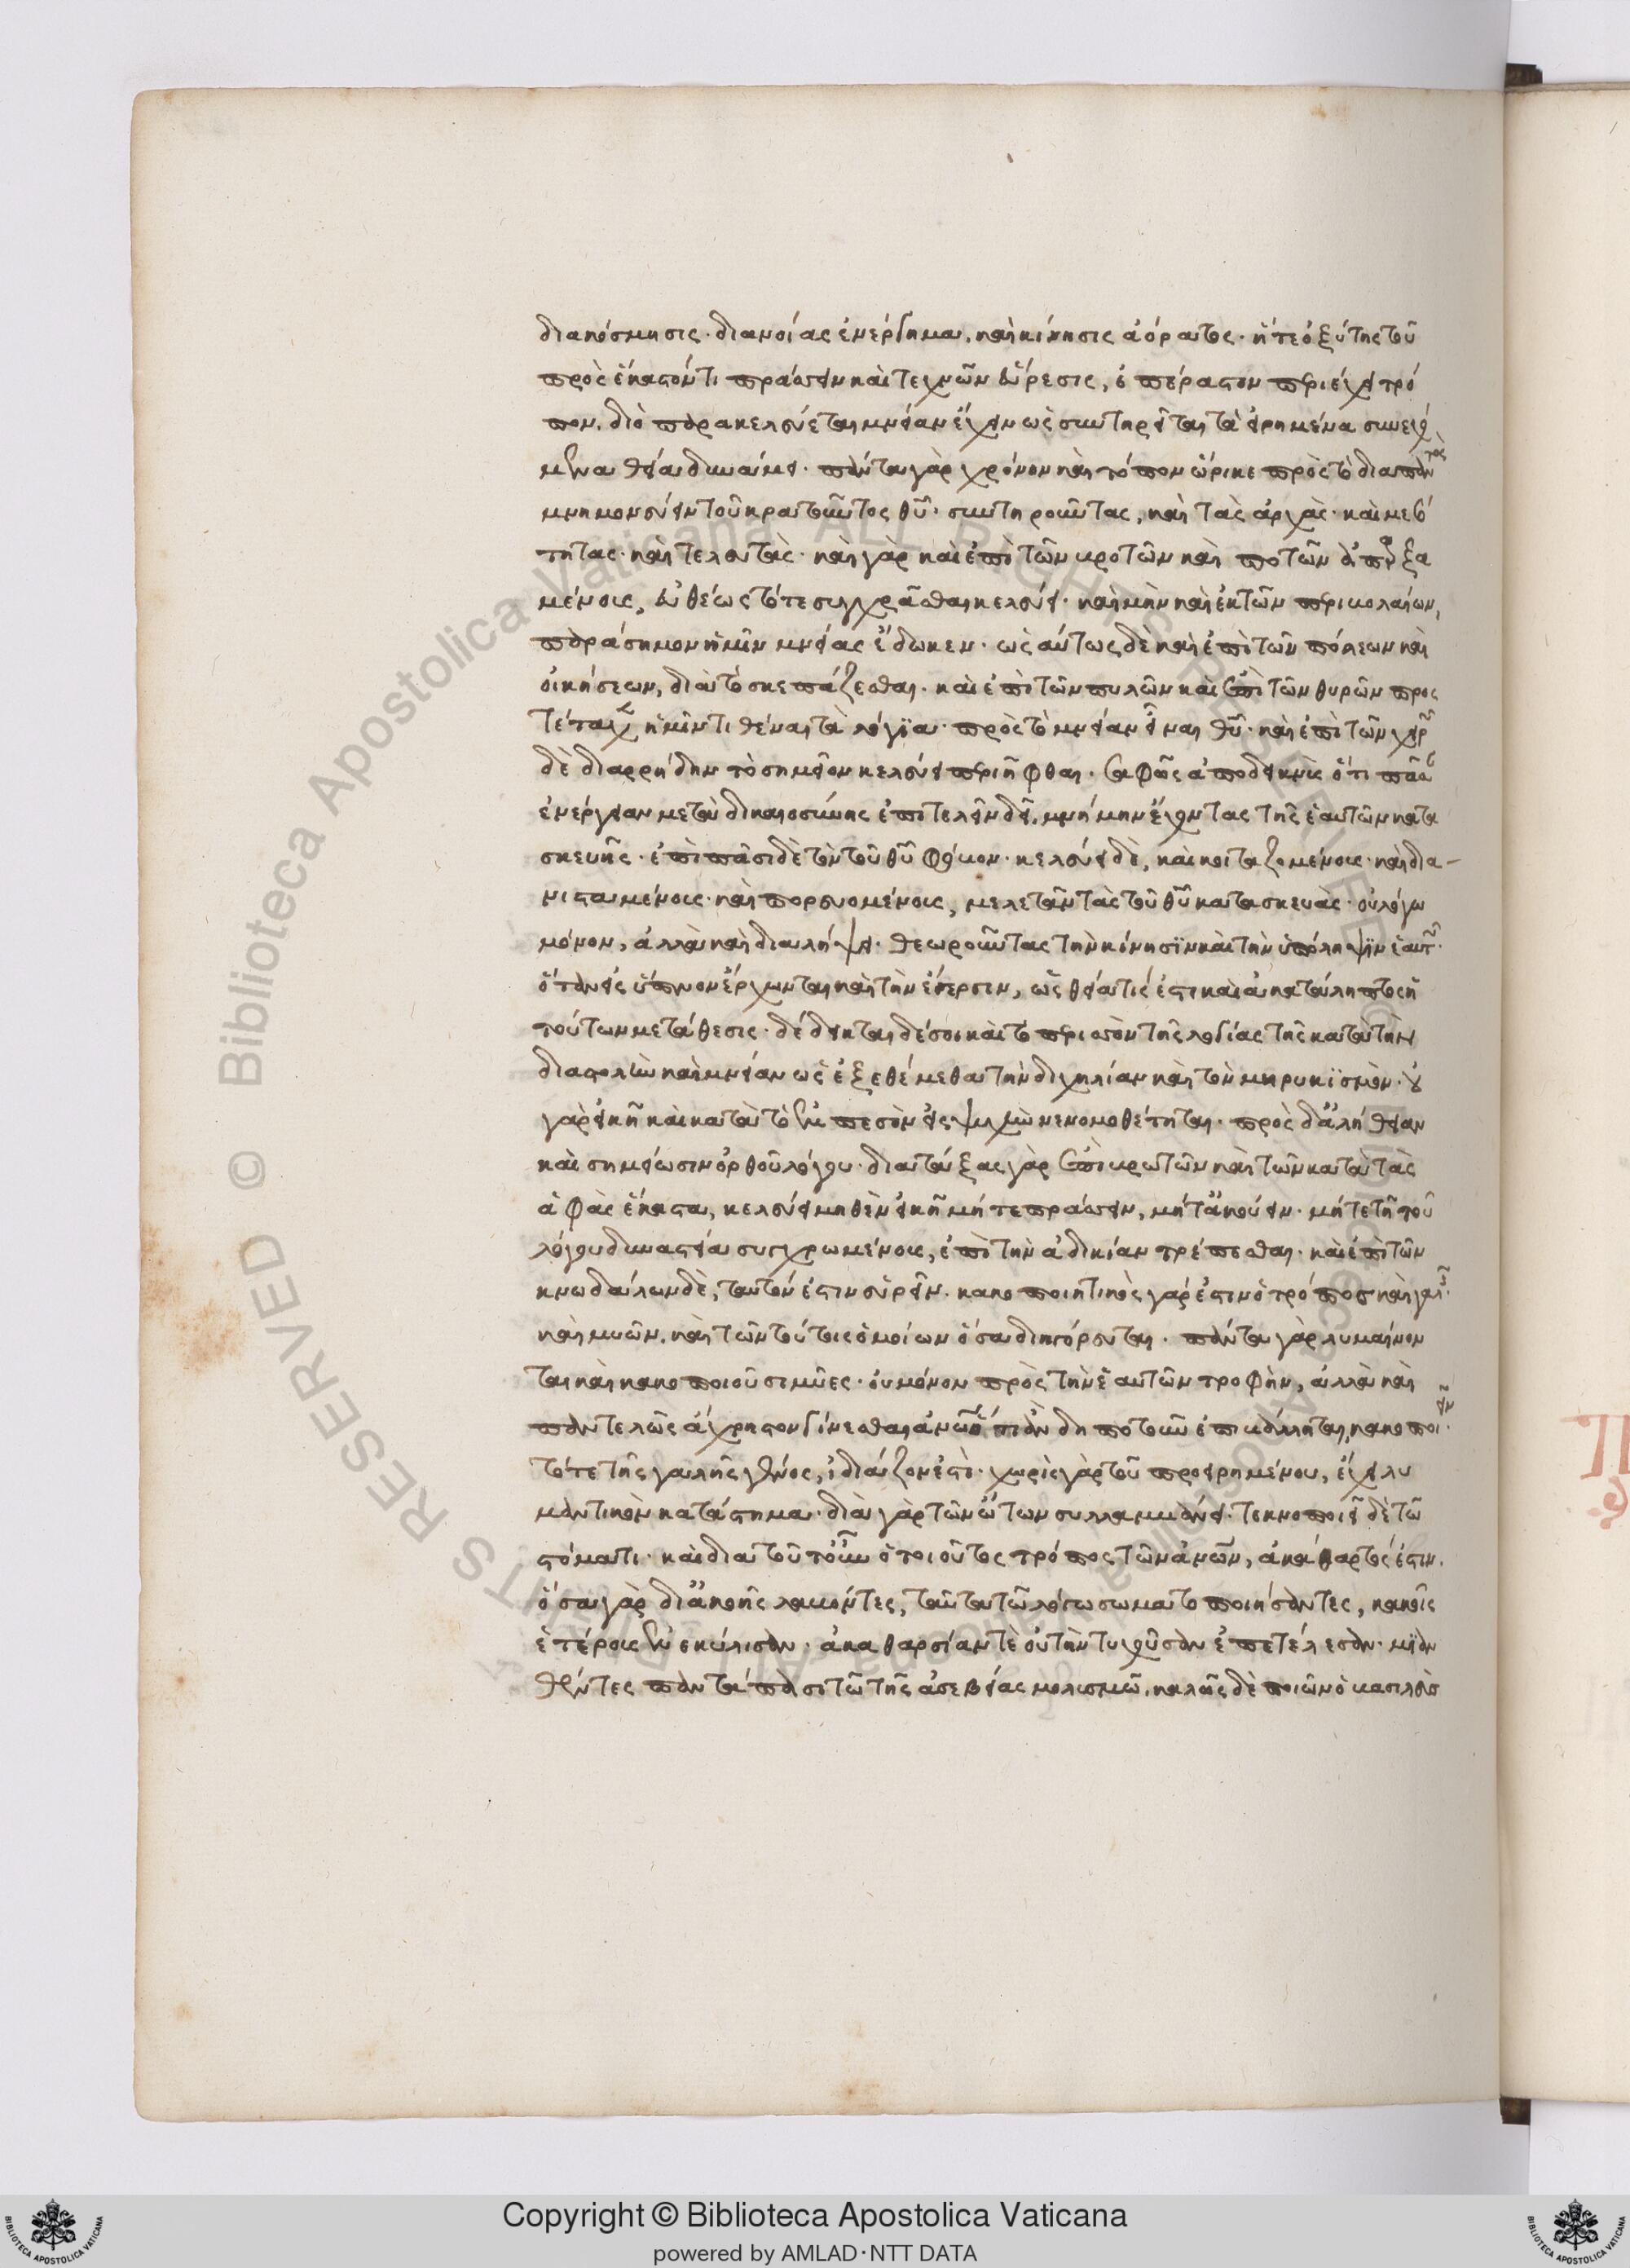 διακόσμησις· διανοίας ἐνέργημα, καὶ κίνησις ἀόρατος· ἥ τε ὀξύτης τοῦ
πρὸς ἕκαστόν τι πράσσειν καὶ τεχνῶν εὕρεσις, ἀπέραστον περιέχει τρό
πον. διὸ παρακελεύεται μνείαν ἔχειν ὡς συντηρεῖται τὰ εἰρημένα συνεχό
μενα θείᾳ δυνάμει· πάντα γὰρ χρόνον καὶ τόπον ὥρικε πρὸς τὸ διαπαντὸς
μνημονεύειν τοῦ κρατοῦντος θῦ· συντηροῦντας, καὶ τὰς ἀρχὰς· καὶ μεσό
τητας· καὶ τελευτὰς· καὶ γὰρ καὶ ἐπὶ τῶν βρωτῶν καὶ ποτῶν ἀπαρξα
μένοις, εὐθέως τότε συγχρᾶσθαι κελεύει· καὶ μὴν καὶ ἐκ τῶν περιβολαίων,
παράσημον ἡμῖν μνείας ἔδωκεν· ὡς αὕτως δὲ καὶ ἐπὶ τῶν πόλεων καὶ
οἰκήσεων, διὰ τὸ σκεπάζεσθαι· καὶ ἐπὶ τῶν πυλῶν καὶ ἐπὶ τῶν θυρῶν προς
τέταχε ἡμῖν τιθέναι τὰ λόγια· πρὸς τὸ μνείαν εἶναι θῦ· καὶ ἐπὶ τῶν χειρῶν
δὲ διαρρήδην τὸ σημεῖον κελεύει περιῆφθαι· σαφῶς ἀποδεικνὺς ὅτι πᾶσαν
ἐνέργειαν μετὰ δικαιοσύνης ἐπιτελεῖν δεῖ, μνήμην ἔχοντας τῆς ἑαυτῶν κατα
σκευῆς· ἐπὶ πᾶσι δὲ τὸν τοῦ θῦ φόβον· κελεύει δὲ, καὶ κοιταζομένοις· καὶ δια-
νισταμένοις· καὶ πορευομένοις, μελετᾶν τὰς τοῦ θῦ κατασκευὰς· οὐ λόγω
μόνον, ἀλλὰ καὶ διαλήψει· θεωροῦντας τὴν κίνησϊν καὶ τὴν ὑπόληψϊν ἑαυτῶν·
ὅταν εἰς ὕπνον ἔρχωνται καὶ τὴν ἔγερσιν, ὡς θεία τίς ἐστι καὶ ἀκατάληπτος ἡ
τούτων μετάθεσις· δέδεικται δέ σοι καὶ τὸ περισσὸν τῆς λογίας τῆς κατὰ τὴν
διαστολὴν καὶ μνείαν ὡς ἐξεθέμεθα τὴν διχηλίαν καὶ τὸν μηρυκϊσμὸν· οὐ
γὰρ εἰκῆ καὶ κατὰ τὸ ἐμπεσὸν εἰς ψυχὴν νενομοθέτηται· πρὸς δ' ἀλήθειαν
καὶ σημείωσιν ὀρθοῦ λόγου· διατάξας γὰρ ἐπὶ βρωτῶν καὶ τῶν κατὰ τὰς
ἁφὰς ἕκαστα, κελεύει μηθὲν εἰκῆ μήτε πράσσειν, μήτ' ἀκούειν· μήτε τῆ τοῦ
λόγου δυναστεία συγχρωμένοις, ἐπὶ τὴν ἀδικίαν τρέπεσθαι· καὶ ἐπὶ τῶν
κνωδάλων δὲ, ταυτόν ἐστιν εὑρεῖν. κακοποιητικὸς γάρ ἐστιν ὁ τρόπος καὶ γαλῆς
καὶ μυῶν, καὶ τῶν τούτοις ὁμοίων ὅσα διηγόρευται· πάντα γὰρ λυμαίνον
ται καὶ κακοποιοῦσι μῦες· οὐ μόνον πρὸς τὴν ἑαυτῶν τροφὴν, ἀλλὰ καὶ
παντελῶς ἄχρηστον γίνεσθαι ἀνῶ ὅ τι ἂν δηποτοῦν ἐπιβάληται, κακοποιεῖν.
τό τε τῆς γαλῆς γένος, ἰδιάζον ἐστὶ· χωρὶς γὰρ τοῦ προειρημένου, ἔχει λυ
μαντικὸν κατάστημα· διὰ γὰρ τῶν ὤτων συλλαμβάνει· τεκνοποιεῖ δὲ τῶ
στόματι· καὶ διὰ τοῦτο οὖν ὁ τοιοῦτος τρόπος τῶν ἀνῶν, ἀκάθαρτός ἐστιν.
ὅσα γὰρ δι' ἀκοῆς λαβόντες, ταῦτα τῶ λόγω σωματοποιήσαντες, κακοῖς
ἑτέροις ἐνεκύλισαν· ἀκαθαρσίαν τὲ οὐ τὴν τυχοῦσαν ἐπετέλεσαν· μϊαν
θέντες παντάπασι τῶ τῆς ἀσεβείας μολυσμῶ. καλῶς δὲ ποιῶν ὁ βασιλεὺς
© Biblioteca Apostolica Vaticana ALL RIGHTS RESERVED
Copyright © Biblioteca Apostolica Vaticana
powered by AMLAD・NTT DATA